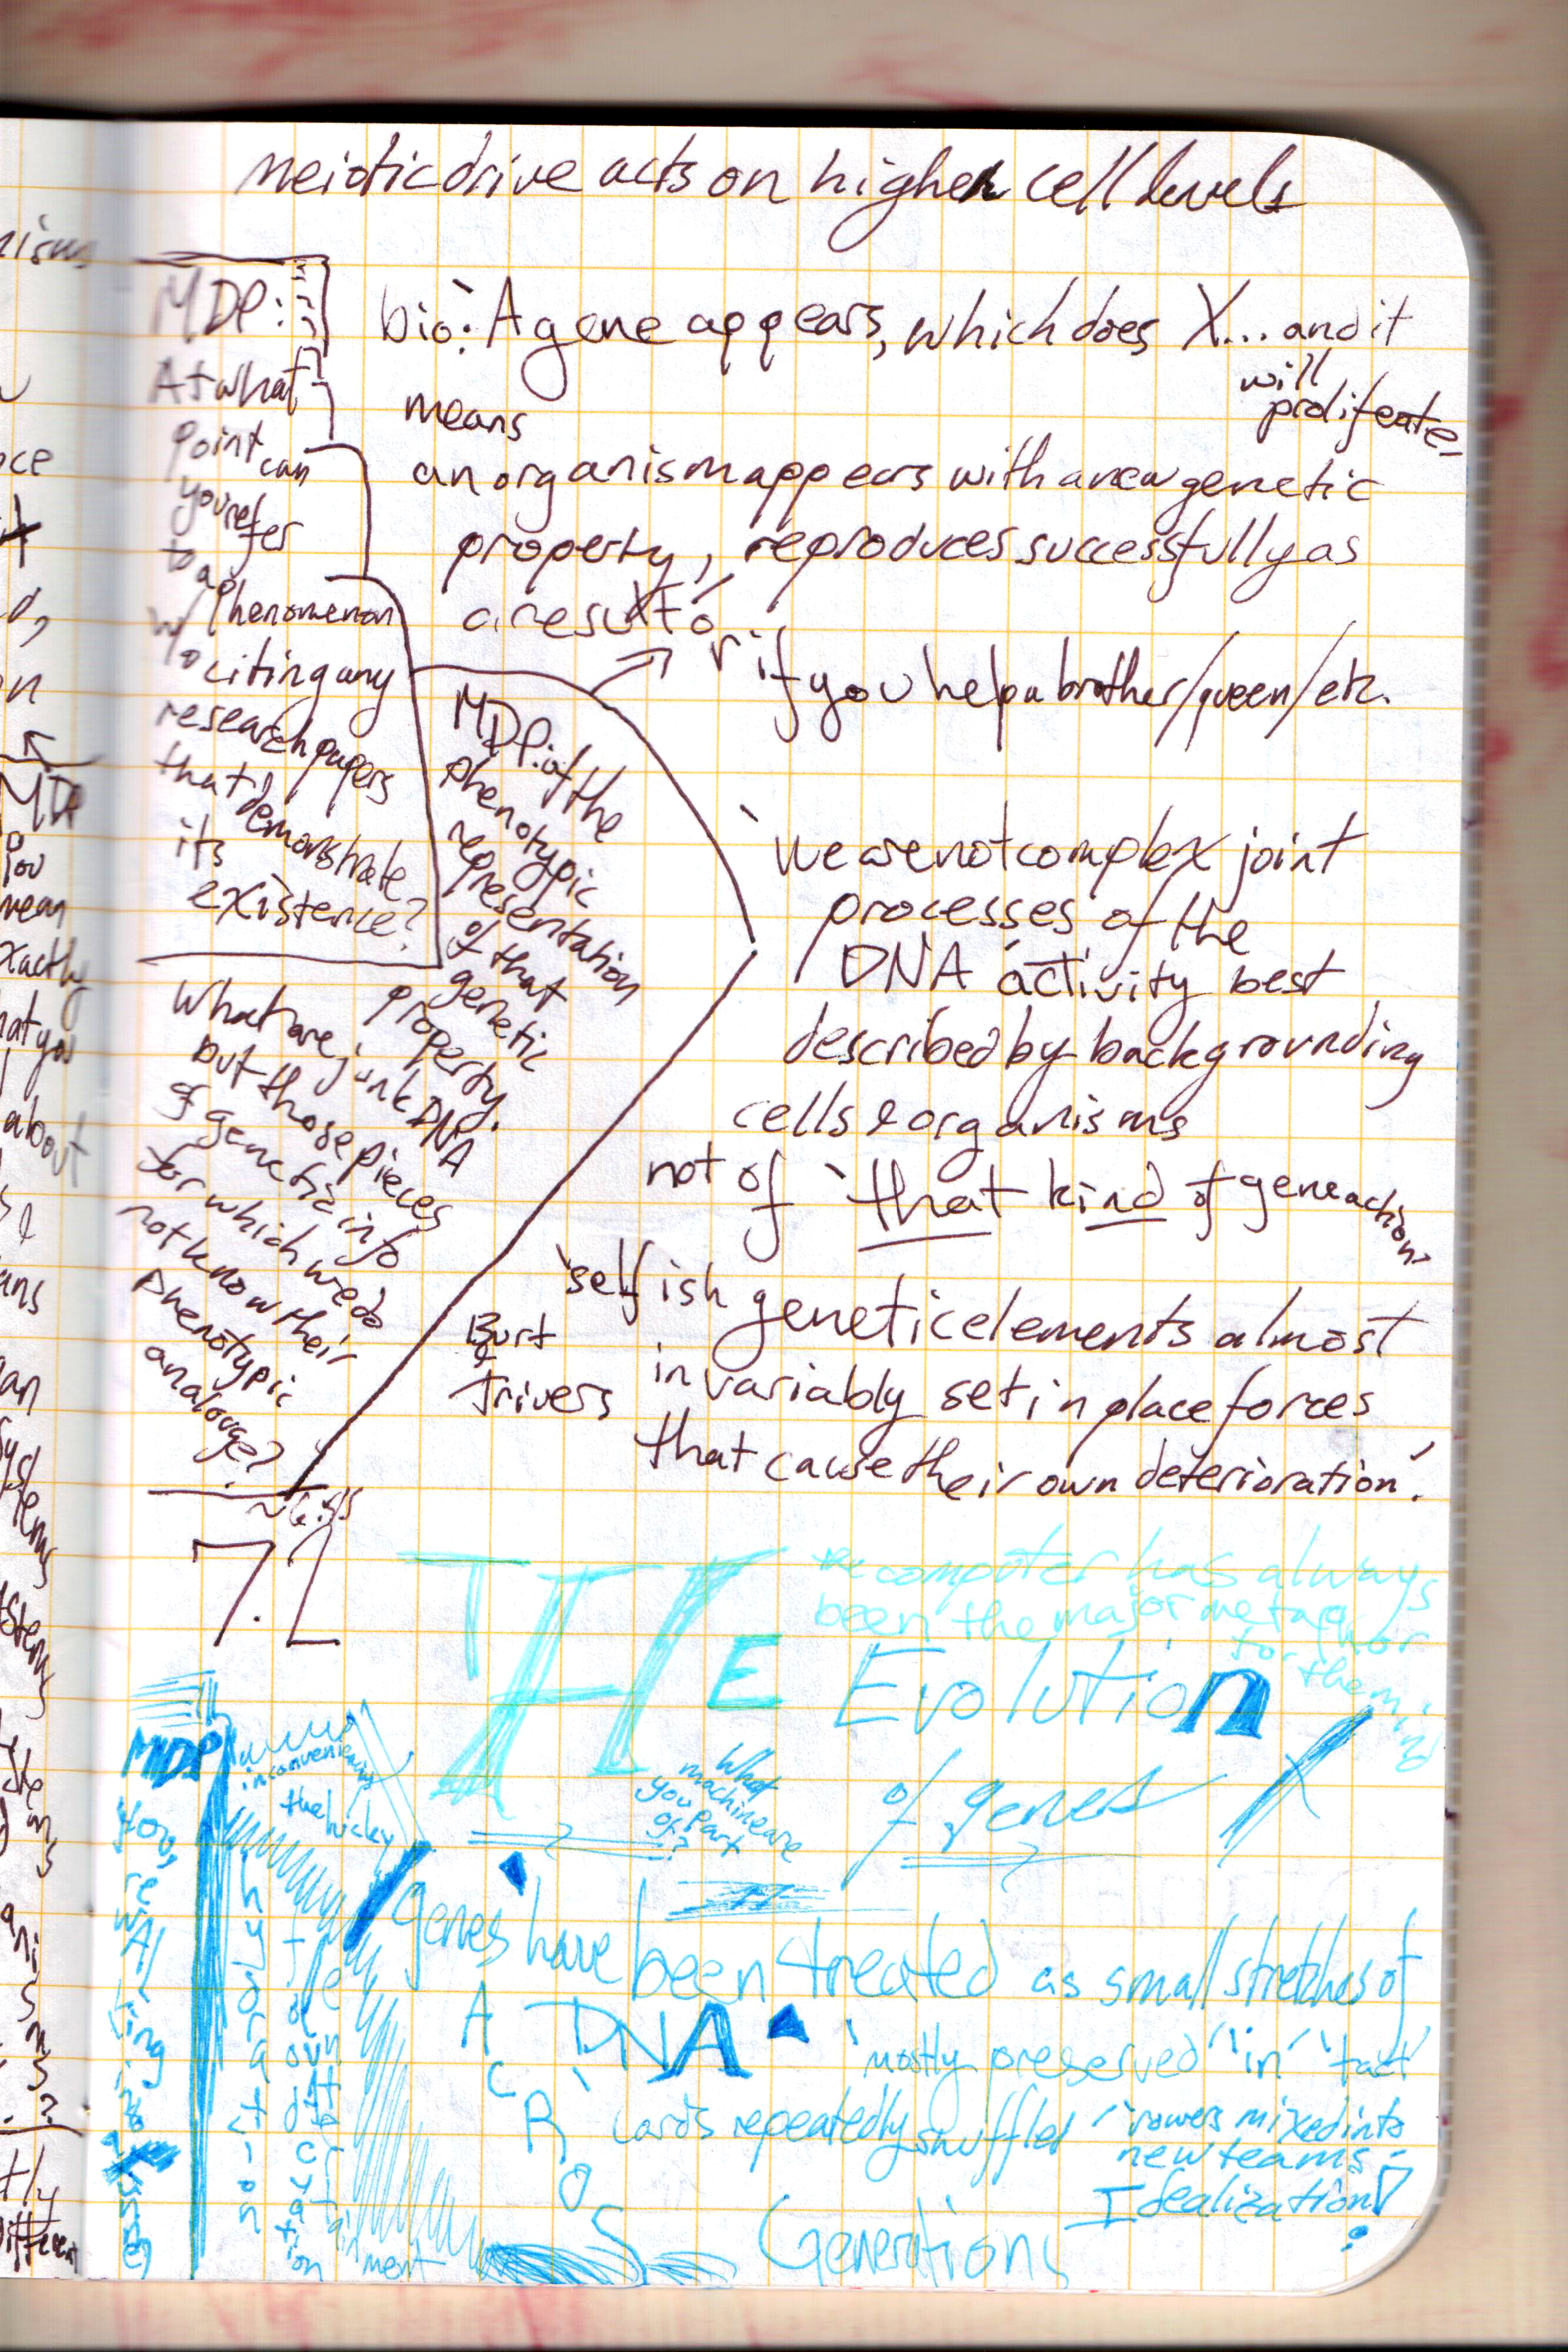 meiotic drive acts on higher cell levels
bio: A gene appears, which does X... and it
will
proliferate
means
an organism appears with a new genetic
property, reproduces successfully as
a result
or if you help a brother/queen/etc.
MDP:
At what
point can
you refer
to a
phenomenon
w/o citing any
research papers
that demonstrate
its
existence?
MDP: of the
phenotypic
representation
of that
genetic
property.
What are junk DNA
but those pieces
of genetic info
for which we do
not know their
phenotypic
analouge?
'we are not complex joint
processes of the
DNA activity best
described by backgrounding
cells & organisms
not of 'that kind of gene action'
'selfish genetic elements almost
invariably set in place forces
that cause their own deterioration'.
Burt
&
Trivers
7.2
THE Evolution
of genes
the computer has always
been the major metaphor
for the mind
What
machine are
you part
of?
MDP
inconveniencing
the hicky
genes have been treated as small stretches of
DNA
'mostly preserved' 'in' 'tact'
cards repeatedly shuffled / 'rowers mixed into
new teams'
Idealization!
ACROSS
Generations
hydration